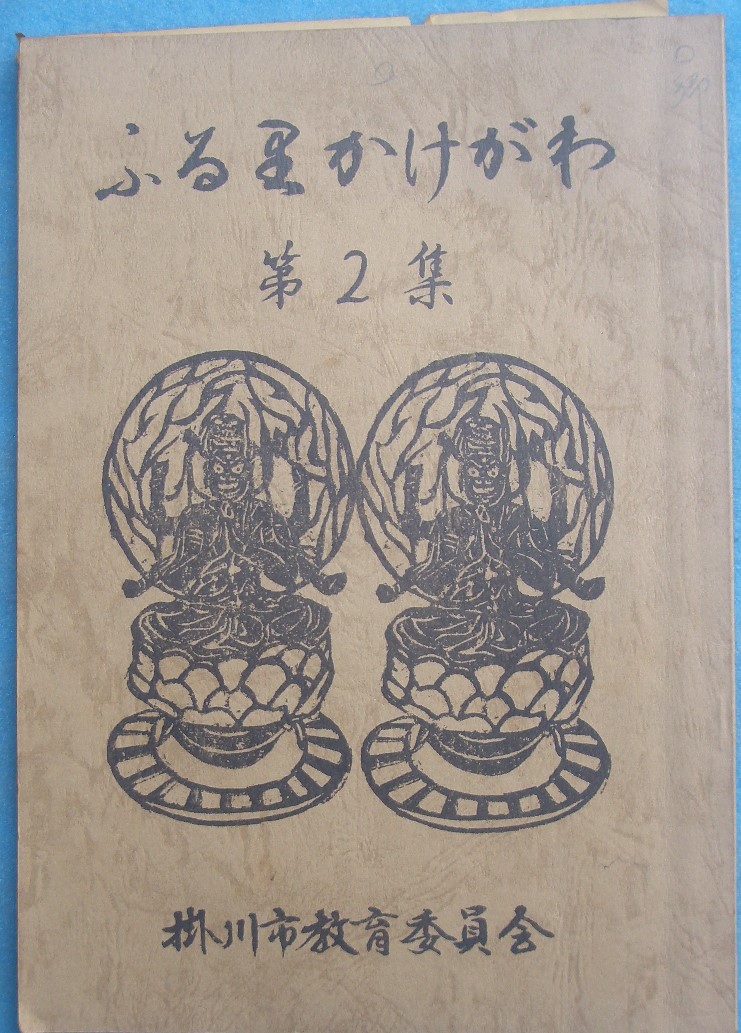 ふる里かけがわ
第2集
掛川市教育委員会